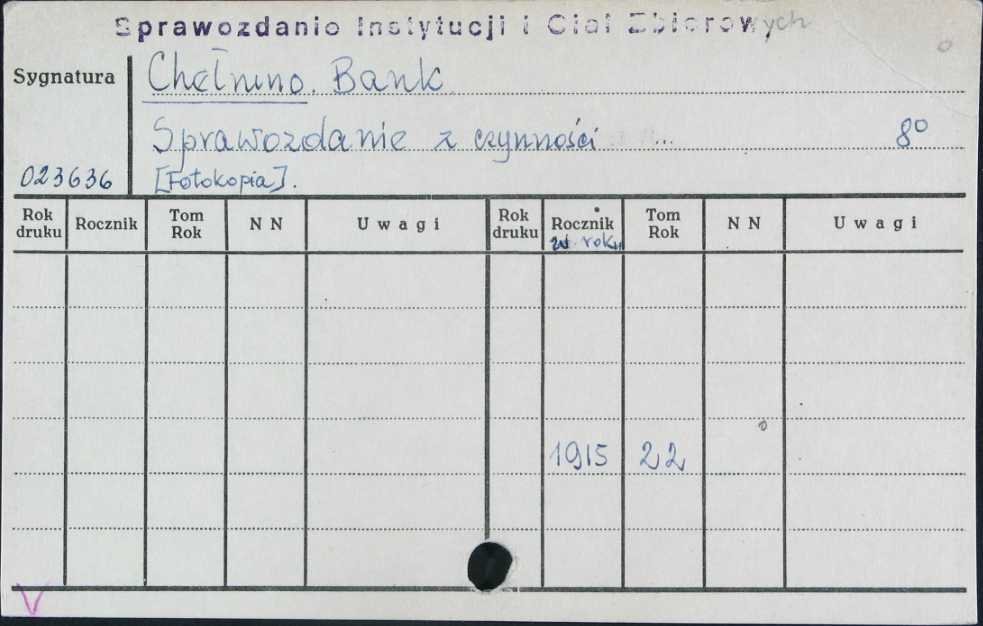 Sprawozdanie Instytucji i Ciał Zbiorowych
Sygnatura
Chełmno. Bank
Sprawozdanie z czynności ... 8°
023636 [Fotokopia].
Rok druku Rocznik Tom Rok N N Uwagi Rok druku Rocznik w roku Tom Rok N N Uwagi
1915 22
V